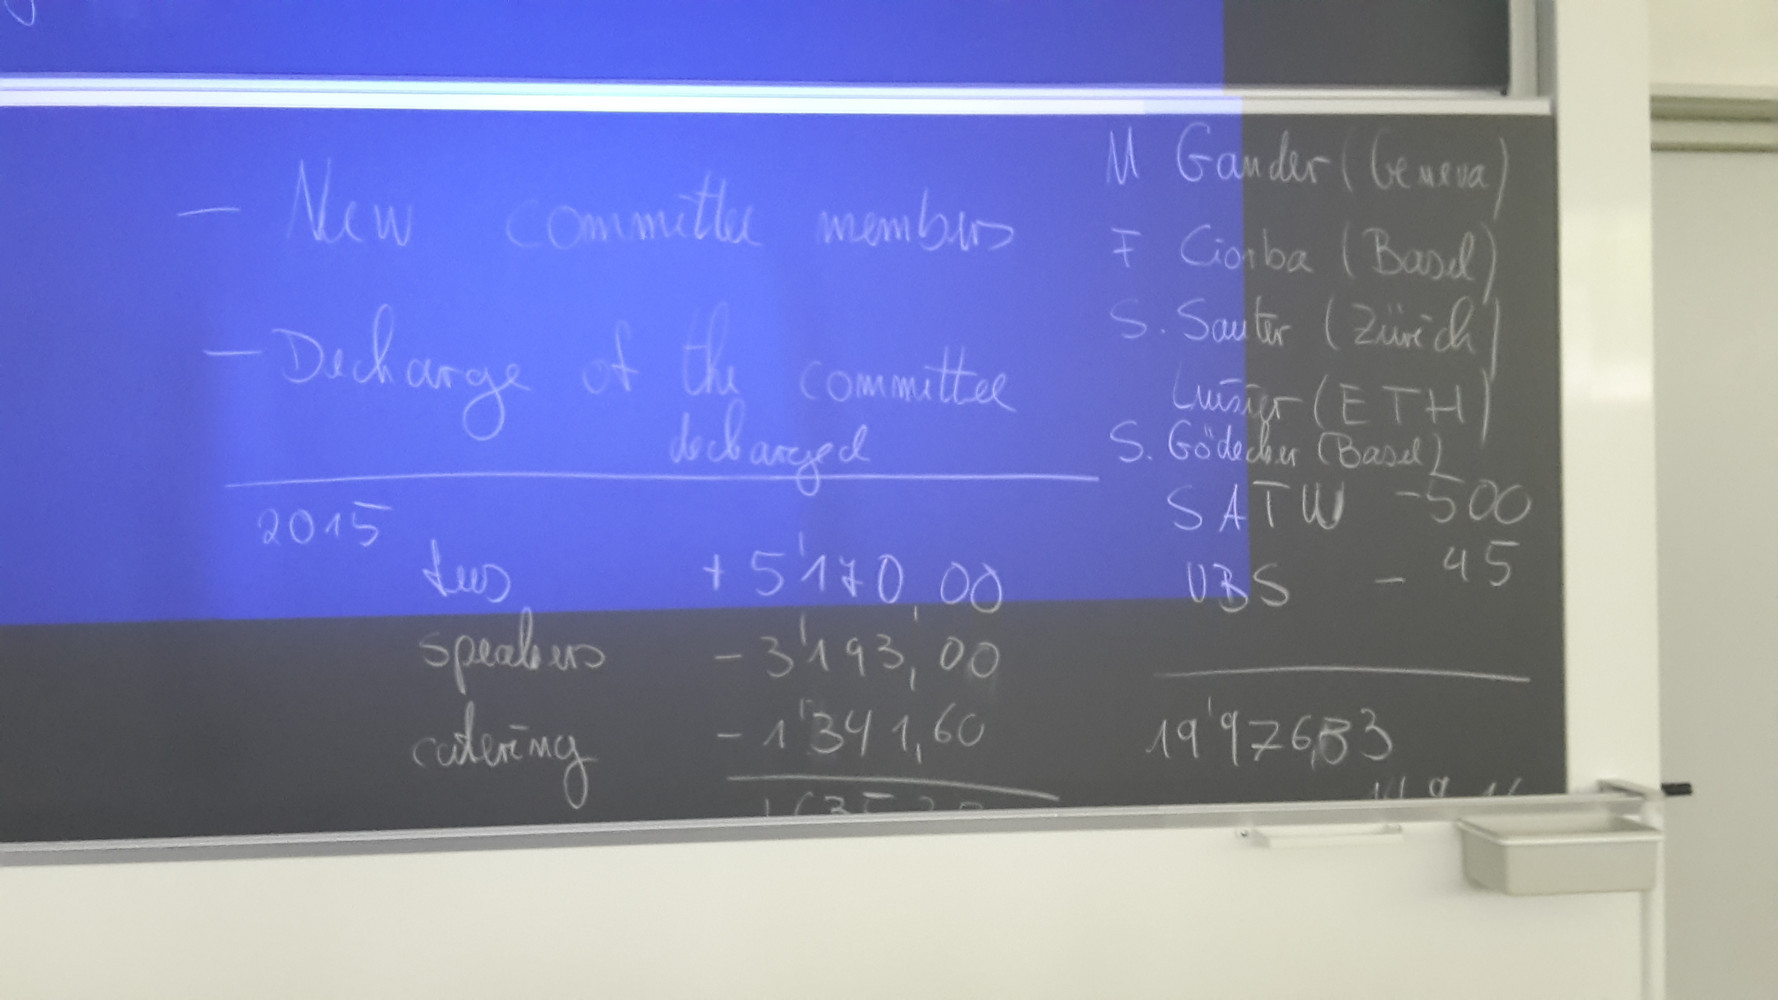 - New committee members
- Decharge of the committee
decharged
2015
fees + 5'170,00
speakers - 3'193,00
catering - 1'341,60
M Gander (Geneva)
F Ciorba (Basel)
S. Sauter (Zürich)
Luisier (ETH)
S. Gödecker (Basel)
SATW -500
UBS - 45